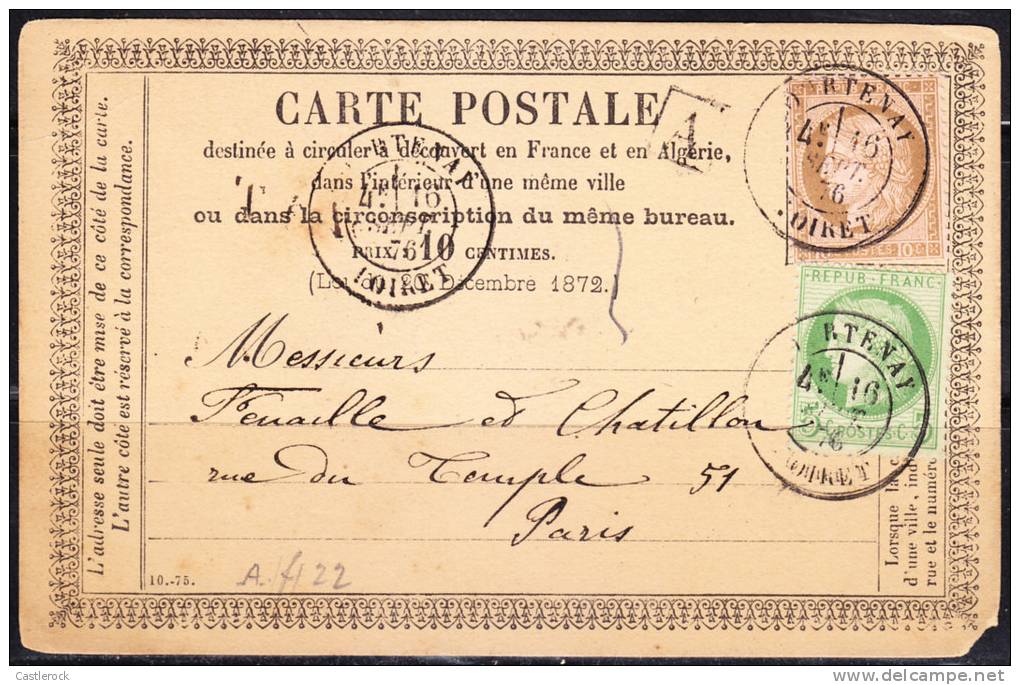 CARTE POSTALE
destinée à circuler à découvert en France et en Algérie,
dans l'intérieur d'une même ville
ou dans la circonscription du même bureau.
PRIX: 10 CENTIMES.
(Loi du 20 Décembre 1872.)
Messieurs
Fenaille et Chatillon
rue du Temple 51
Paris
L'adresse seule doit être mise de ce côté de la carte.
L'autre côté est réservé à la correspondance.
Lorsque la c
d'une ville, ind
rue et le numéro
10.-75.
A. 22
A
ARTENAY
4E 16
SEPT.
76
LOIRET
10 C
REPUB FRANC
POSTES
ARTENAY
4E 16
76
LOIRET
RTENAY
4E 16
SEPT.
76
LOIRET
Castlerock
delcampe.net